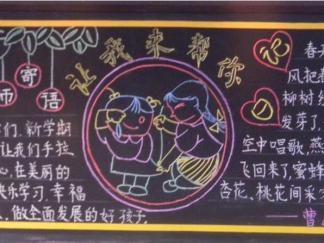 让我来帮你
师寄语
们,新学期
让我们手拉
心,在美丽的
快乐学习,幸福
,做全面发展的好孩子.
心
春
风把
柳树
发芽了,
空中唱歌,燕
飞回来了,蜜蜂
杏花、桃花间采
——曹